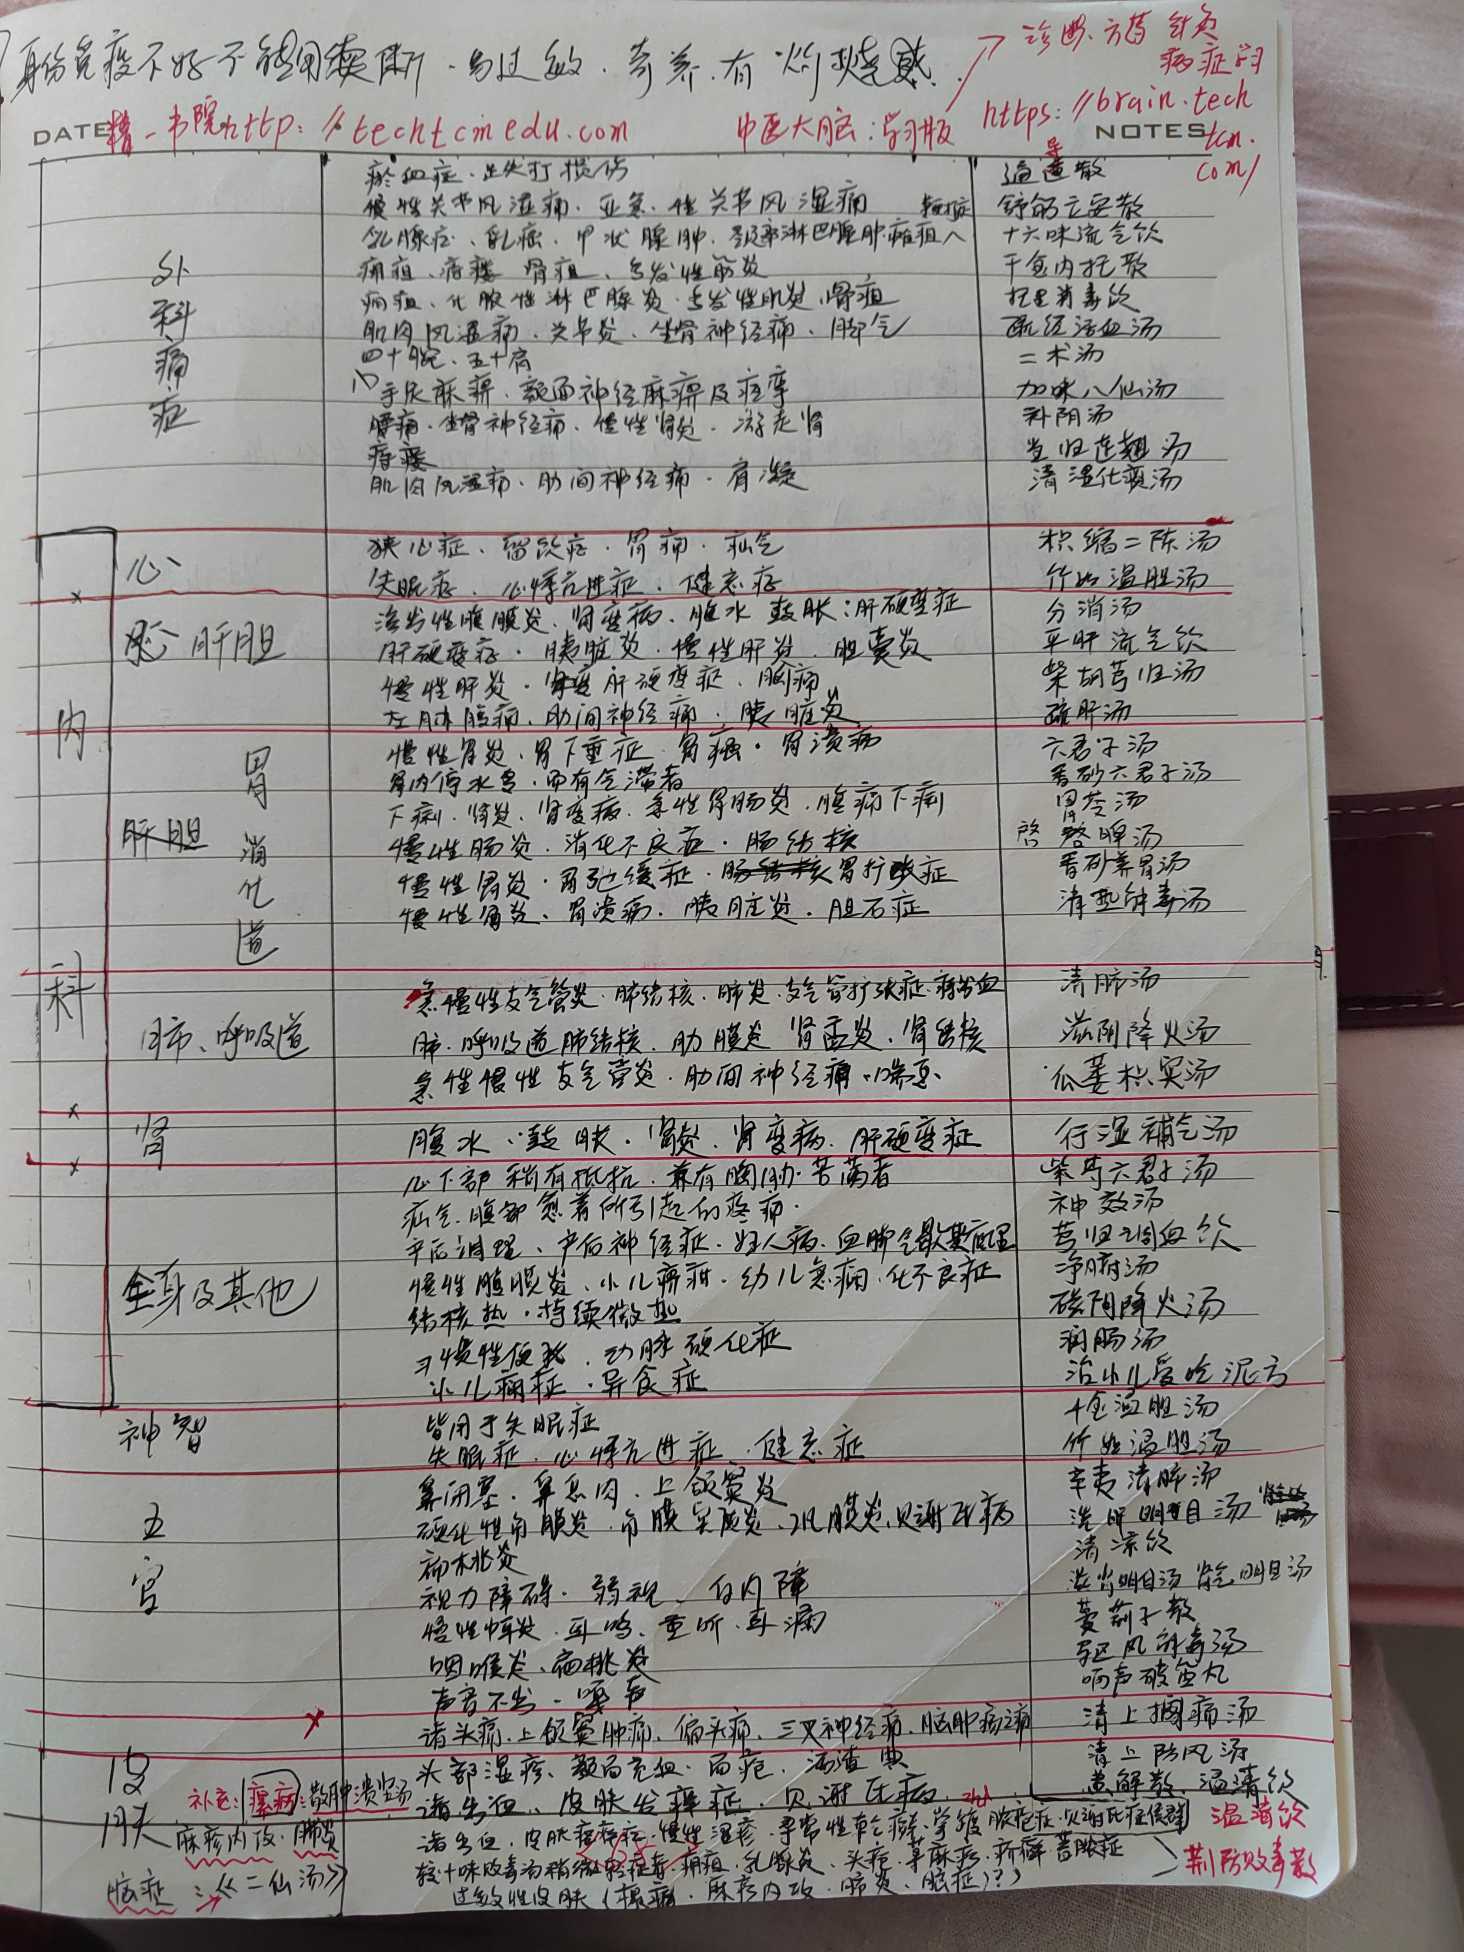 身份免疫不好不能用续断·易过敏·营养·有灼烧感
诊断·方药 针灸
病症学习
DATE
精一书院http://techtcmedu.com
中医大脑:学习版
https://brain.tech
NOTES
tcm.
com/
外科痛症
瘀血症·跌打损伤
通导散
慢性关节风湿痛·亚急性关节风湿痛
舒筋立安散
乳腺症·乳癌·甲状腺肿·颈部淋巴腺肿
十六味流气饮
痈疽·痔瘘·骨疽·多发性筋炎
千金内托散
痈疽、化脓性淋巴腺炎·多发性肌炎·骨疽
托里消毒饮
肌肉风湿痛·关节炎·坐骨神经痛·脚气
疏经活血汤
四十腕、五十肩
二术汤
手足麻痹·颜面神经麻痹及痉挛
加味八仙汤
腰痛·坐骨神经痛·慢性肾炎·游走肾
补阴汤
痔瘘
当归连翘汤
肌肉风湿痛·肋间神经痛·肩凝
清湿化痰汤
内科
心
狭心症·留饮症·胃痛·疝气
枳缩二陈汤
失眠症·心悸亢进症·健忘症
竹茹温胆汤
肝胆
渗出性腹膜炎·肾变病·腹水鼓胀:肝硬变症
分消汤
肝硬变症·胰脏炎·慢性肝炎·胆囊炎
平肝流气饮
慢性肝炎·肝硬变症·胸痛
柴胡芎归汤
左胁腹痛·肋间神经痛·胰脏炎
疏肝汤
肝胆
胃消化道
慢性胃炎·胃下垂症·胃癌·胃溃疡
六君子汤
胃内停水音·而有气滞者
香砂六君子汤
下痢·肾炎·肾变病·急性胃肠炎·腹痛下痢
胃苓汤
慢性肠炎·消化不良症·肠结核
启 启脾汤
慢性胃炎·胃弛缓症·肠结核胃扩张症
香砂养胃汤
慢性胃炎、胃溃疡·胰脏炎·胆石症
清热解毒汤
肺、呼吸道
急慢性支气管炎·肺结核·肺炎·支气管扩张症
清肺汤
肺·呼吸道肺结核·肋膜炎 肾盂炎·肾结核
滋阴降火汤
急性慢性支气管炎·肋间神经痛·喘息
瓜蒌枳实汤
肾
腹水·鼓胀·肾炎·肾变病·肝硬变症
行湿補气汤
全身及其他
心下部稍有抵抗·兼有胸胁苦满者
柴芍六君子汤
疝气·腹部愈着所引起的疼痛·
神效汤
产后调理、产后神经症·妇人病·血脚气
芎归调血饮
慢性腹膜炎·小儿疳疳·幼儿急痫·化不良症
净腑汤
结核热·持续微热
滋阴降火汤
习惯性便秘·动脉硬化症
润肠汤
小儿痫症·异食症
治小儿爱吃泥方
神智
皆用于失眠症
千金温胆汤
失眠症·心悸亢进症·健忘症
竹茹温胆汤
五官
鼻闭塞·鼻息肉·上颌窦炎
辛夷清肺汤
硬化性角膜炎·角膜实质炎·巩膜炎·贝谢氏病
洗肝明目汤
扁桃炎
清凉饮
视力障碍·弱视·白内障
滋肾明目汤 肾气明目汤
慢性中耳炎·耳鸣·重听·耳漏
蔓荆子散
咽喉炎·扁桃炎
驱风解毒汤
声音不出·嘎声
响声破笛丸
诸头痛·上颌窦肿痛·偏头痛·三叉神经痛·脑肿疡之痛
清上蠲痛汤
皮肤
头部湿疹·颜面充血·面疱·酒渣鼻
清上防风汤
诸出血·皮肤发痒症·贝谢氏病
黄解散 温清饮
补充:瘰疬:散肿溃坚汤
诸出血·皮肤瘙痒症·慢性湿疹·寻常性乾癣·掌蹠脓疱症·贝谢氏症候群
温清饮
麻疹内攻·肺炎
较十味败毒汤稍微轻症者·痈疽·乳腺炎·头疮·荨麻疹·疥癣蓄脓症
荆防败毒散
脑症:《二仙汤》
过敏性皮肤(瘰疬·麻疹内攻·肺炎·脑症)?)